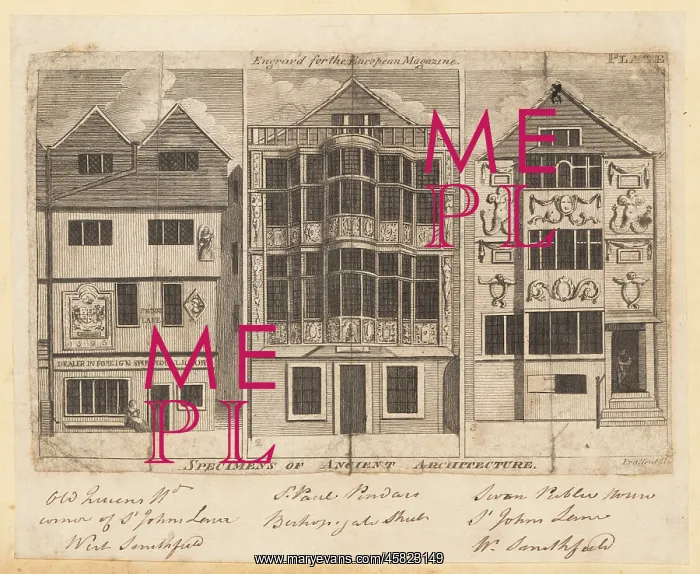 Engrav'd for the European Magazine.
PLATE
1595
DEALER IN FOREIGN SPIRITUOUS LIQUORS
2
3
SPECIMENS OF ANCIENT ARCHITECTURE.
Prattent
Old Queens
corner of St Johns Lane
West Smithfield
St Paul Pindars
Bishopsgate Street
Swan Public House
St Johns Lane
W. Smithfield
ME
PL
ME
PL
www.maryevans.com/45823149